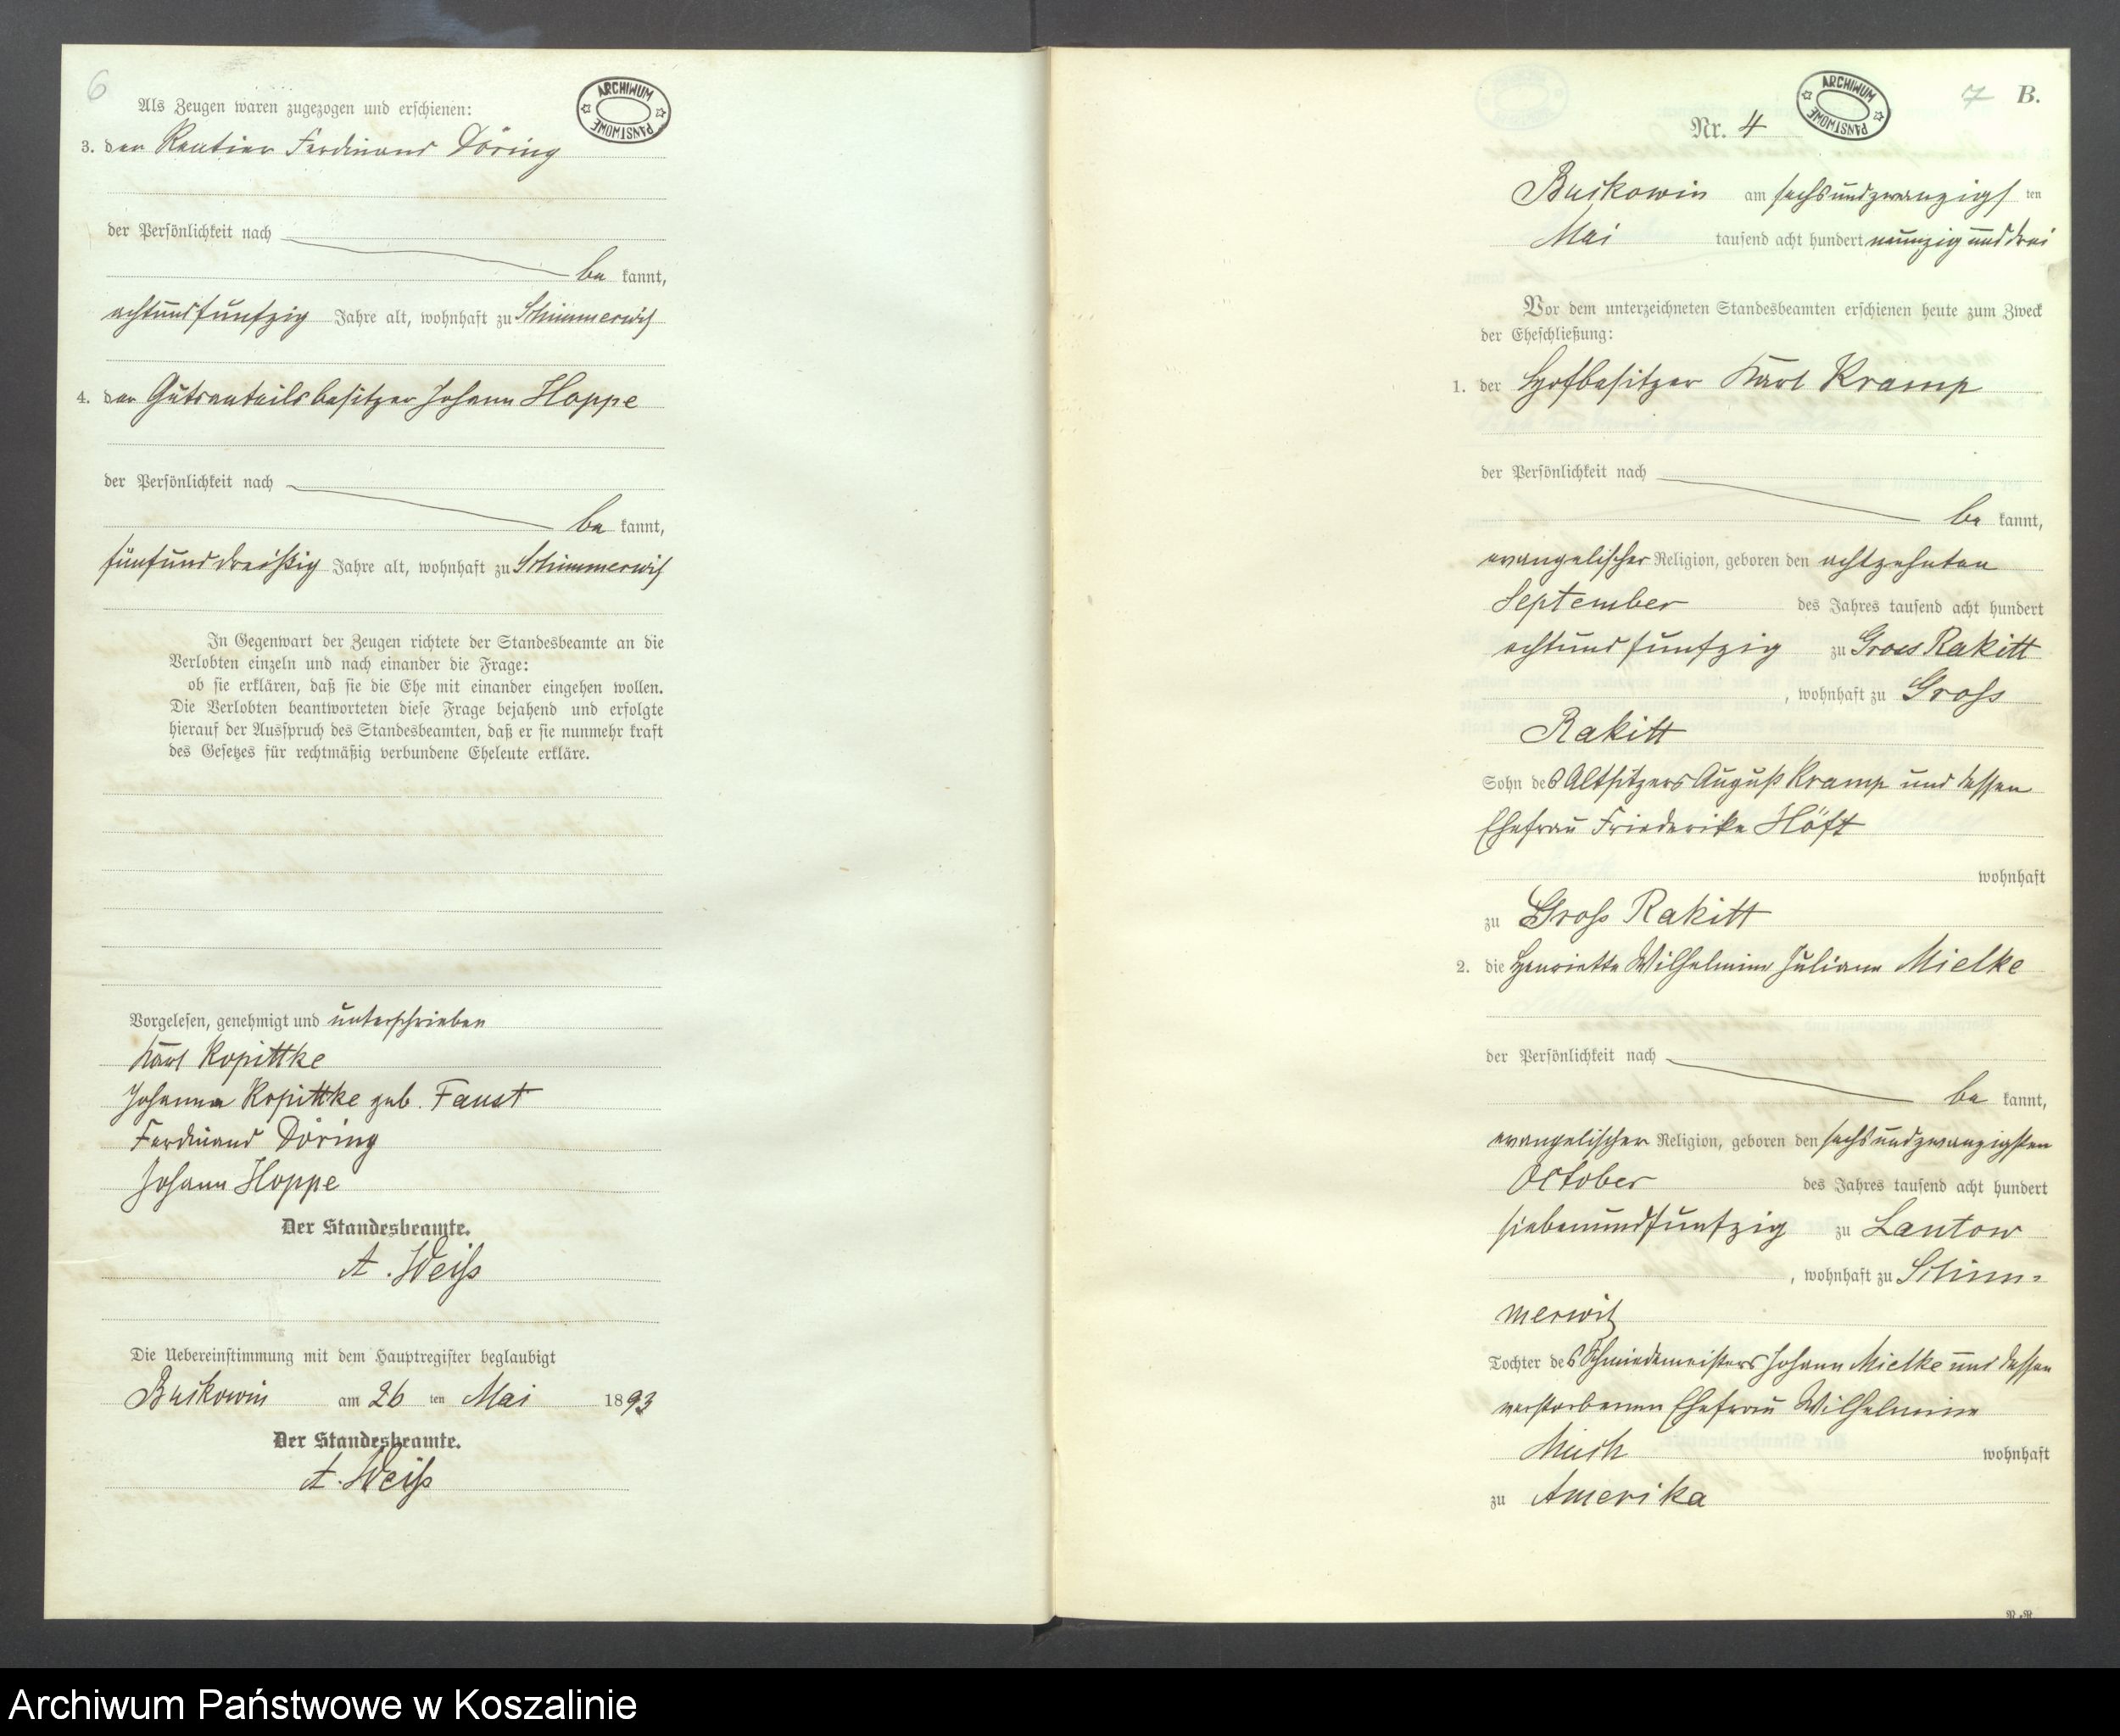 6
ARCHIWUM PAŃSTWOWE
Als Zeugen waren zugezogen und erschienen:
3. der Rentier Ferdinand Döring
der Persönlichkeit nach
be kannt,
achtundfunfzig Jahre alt, wohnhaft zu Schimmerwitz
4. der Gutsanteilsbesitzer Johann Hoppe
der Persönlichkeit nach
be kannt,
fünfunddreißig Jahre alt, wohnhaft zu Schimmerwitz
In Gegenwart der Zeugen richtete der Standesbeamte an die
Verlobten einzeln und nach einander die Frage:
ob sie erklären, daß sie die Ehe mit einander eingehen wollen.
Die Verlobten beantworteten diese Frage bejahend und erfolgte
hierauf der Ausspruch des Standesbeamten, daß er sie nunmehr kraft
des Gesetzes für rechtmäßig verbundene Eheleute erkläre.
Vorgelesen, genehmigt und unterschrieben
Karl Kopittke
Johanna Kopittke geb. Faust
Ferdinand Döring
Johann Hoppe
Der Standesbeamte.
A. Weiß
Die Uebereinstimmung mit dem Hauptregister beglaubigt
Buckowin am 26 ten Mai 1893
Der Standesbeamte.
A. Weiß
ARCHIWUM PAŃSTWOWE
7 B.
Nr. 4
Buckowin am sechsundzwanzigs ten
Mai tausend acht hundert neunzig und drei
Vor dem unterzeichneten Standesbeamten erschienen heute zum Zweck
der Eheschließung:
1. der Hofbesitzer Karl Kramp
der Persönlichkeit nach
be kannt,
evangelischer Religion, geboren den achtzehnten
September des Jahres tausend acht hundert
achtundfunfzig zu Gross Rakitt
, wohnhaft zu Groß
Rakitt
Sohn des Altsitzers August Kramp und dessen
Ehefrau Friederike Höft
wohnhaft
zu Groß Rakitt
2. die Henriette Wilhelmine Juliane Mielke
der Persönlichkeit nach
be kannt,
evangelischer Religion, geboren den sechsundzwanzigsten
October des Jahres tausend acht hundert
siebenundfunfzig zu Lantow
, wohnhaft zu Schim-
merwitz
Tochter des Schmiedemeisters Johann Mielke und dessen
verstorbenen Ehefrau Wilhelmine
wohnhaft
zu Amerika
Archiwum Państwowe w Koszalinie